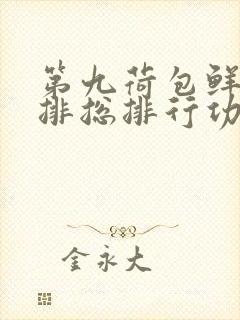 第九荷包鲜
排总排行功
金永大